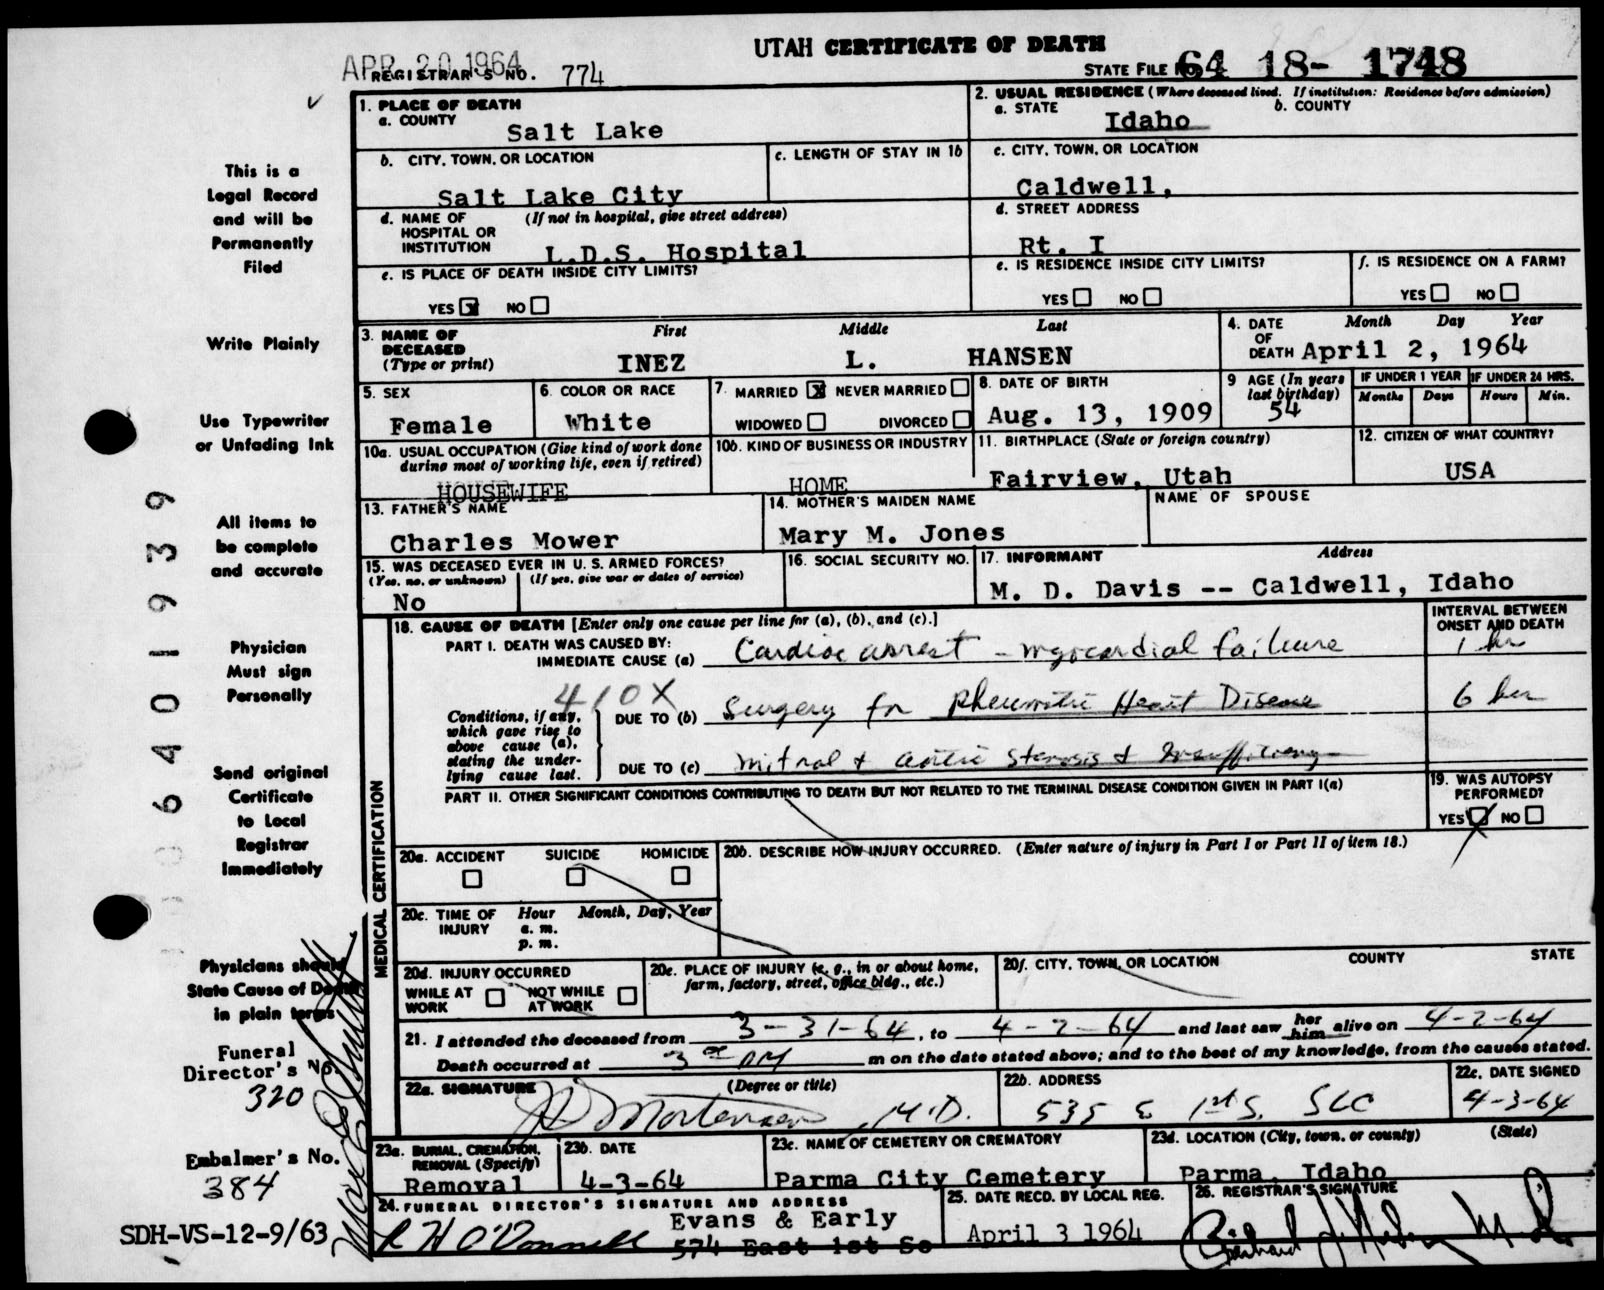 UTAH CERTIFICATE OF DEATH
APR 20 1964
REGISTRAR'S NO. 774
STATE FILE NO. 64 18- 1748
1. PLACE OF DEATH
a. COUNTY
Salt Lake
2. USUAL RESIDENCE (Where deceased lived. If institution: Residence before admission)
a. STATE
b. COUNTY
Idaho
b. CITY, TOWN, OR LOCATION
Salt Lake City
c. LENGTH OF STAY IN 1b
c. CITY, TOWN, OR LOCATION
Caldwell,
d. NAME OF HOSPITAL OR INSTITUTION
(If not in hospital, give street address)
L.D.S. Hospital
d. STREET ADDRESS
Rt. I
e. IS PLACE OF DEATH INSIDE CITY LIMITS?
YES X NO
e. IS RESIDENCE INSIDE CITY LIMITS?
YES NO
f. IS RESIDENCE ON A FARM?
YES NO
3. NAME OF DECEASED (Type or print)
First Middle Last
INEZ L. HANSEN
4. DATE OF DEATH
Month Day Year
April 2, 1964
5. SEX
Female
6. COLOR OR RACE
White
7. MARRIED X NEVER MARRIED
WIDOWED DIVORCED
8. DATE OF BIRTH
Aug. 13, 1909
9 AGE (In years last birthday)
54
IF UNDER 1 YEAR
Months Days
IF UNDER 24 HRS.
Hours Min.
10a. USUAL OCCUPATION (Give kind of work done during most of working life, even if retired)
HOUSEWIFE
10b. KIND OF BUSINESS OR INDUSTRY
HOME
11. BIRTHPLACE (State or foreign country)
Fairview, Utah
12. CITIZEN OF WHAT COUNTRY?
USA
13. FATHER'S NAME
Charles Mower
14. MOTHER'S MAIDEN NAME
Mary M. Jones
NAME OF SPOUSE
15. WAS DECEASED EVER IN U. S. ARMED FORCES?
(Yes, no, or unknown) (If yes, give war or dates of service)
No
16. SOCIAL SECURITY NO.
17. INFORMANT Address
M. D. Davis -- Caldwell, Idaho
18. CAUSE OF DEATH [Enter only one cause per line for (a), (b), and (c).]
INTERVAL BETWEEN ONSET AND DEATH
PART I. DEATH WAS CAUSED BY:
IMMEDIATE CAUSE (a) Cardiac arrest - myocardial failure
1 hr
410X
Conditions, if any, which gave rise to above cause (a), stating the underlying cause last.
DUE TO (b) Surgery for Rheumatic Heart Disease
6 hrs
DUE TO (c) mitral & aortic stenosis & Insufficiency
PART II. OTHER SIGNIFICANT CONDITIONS CONTRIBUTING TO DEATH BUT NOT RELATED TO THE TERMINAL DISEASE CONDITION GIVEN IN PART I(a)
19. WAS AUTOPSY PERFORMED?
YES X NO
MEDICAL CERTIFICATION
20a. ACCIDENT SUICIDE HOMICIDE
20b. DESCRIBE HOW INJURY OCCURRED. (Enter nature of injury in Part I or Part II of item 18.)
20c. TIME OF INJURY
Hour Month, Day, Year
a. m.
p. m.
20d. INJURY OCCURRED
WHILE AT WORK NOT WHILE AT WORK
20e. PLACE OF INJURY (e. g., in or about home, farm, factory, street, office bldg., etc.)
20f. CITY, TOWN, OR LOCATION COUNTY STATE
21. I attended the deceased from 3-31-64, to 4-2-64 and last saw her him alive on 4-2-64
Death occurred at 3 00 PM m on the date stated above; and to the best of my knowledge, from the causes stated.
22a. SIGNATURE (Degree or title)
Mortensen, M.D.
22b. ADDRESS
535 E 1st S. SLC
22c. DATE SIGNED
4-3-64
23a. BURIAL, CREMATION, REMOVAL (Specify)
Removal
23b. DATE
4-3-64
23c. NAME OF CEMETERY OR CREMATORY
Parma City Cemetery
23d. LOCATION (City, town, or county) (State)
Parma, Idaho
24. FUNERAL DIRECTOR'S SIGNATURE AND ADDRESS
R H O'Donnell
Evans & Early
574 East 1st So
25. DATE RECD. BY LOCAL REG.
April 3 1964
26. REGISTRAR'S SIGNATURE
This is a
Legal Record
and will be
Permanently
Filed
Write Plainly
Use Typewriter
or Unfading Ink
All items to
be complete
and accurate
Physician
Must sign
Personally
Send original
Certificate
to Local
Registrar
Immediately
Physicians should
State Cause of Death
in plain terms
Funeral
Director's No.
320
Embalmer's No.
384
SDH-VS-12-9/63
6401939